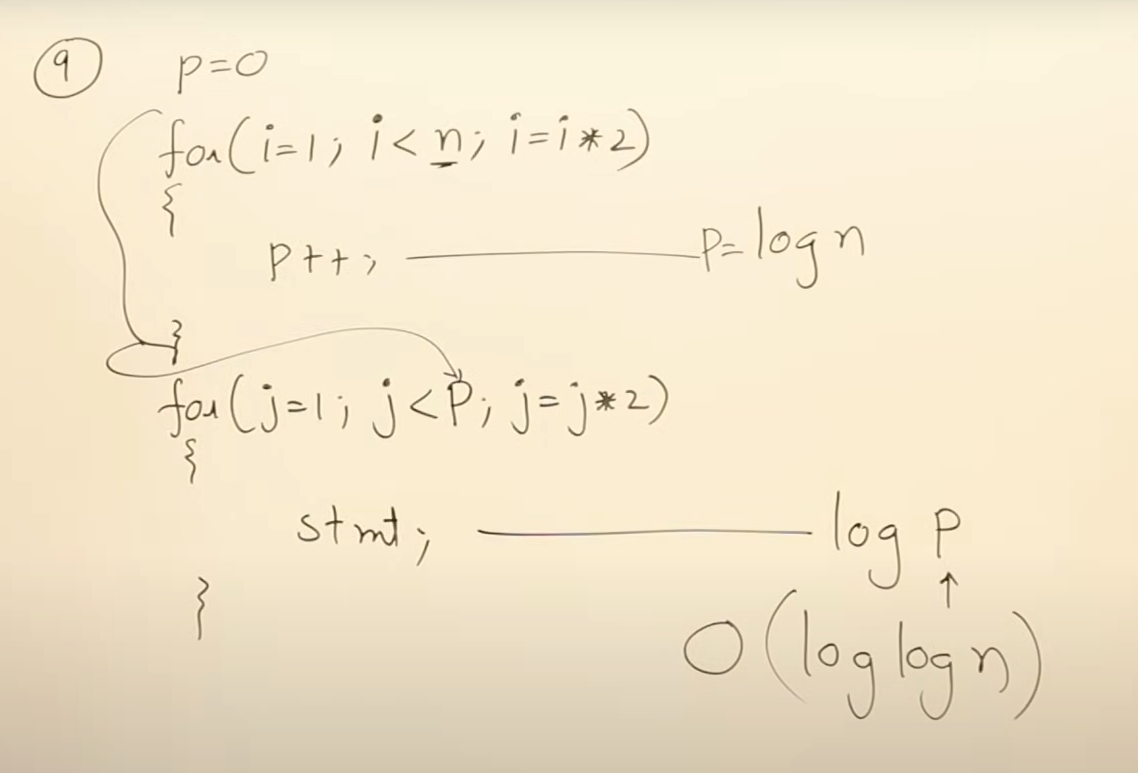 9 p=0
for(i=1; i<n; i=i*2)
{
p++; p=log n
}
for(j=1; j<P; j=j*2)
{
stmt; log P
↑
} O(log log n)